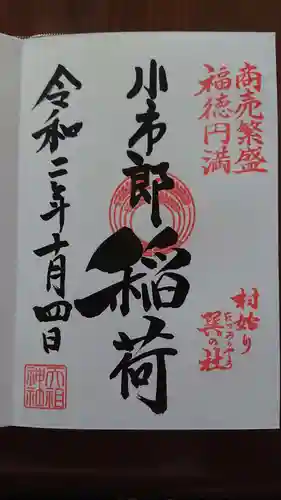 商売繁盛
福徳円満
村始り
巽の社
小市郎稲荷
令和二年十月四日